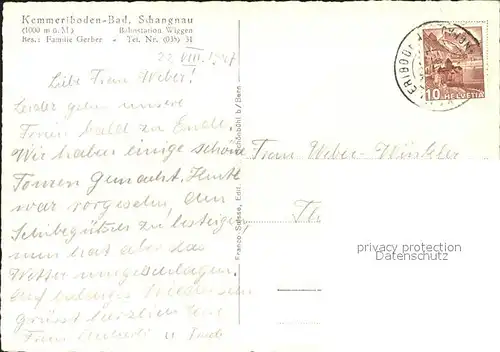 Kemmeriboden-Bad, Schangnau
(1000 m ü. M.) Bahnstation Wiggen
Bes.: Familie Gerber - Tel. Nr. (035) 31
22. VIII. 1947
Liebe Frau Weber!
Leider gehen unsere
Ferien bald zu Ende.
Wir haben einige schöne
Touren gemacht. Heute
war vorgesehen, den
Schibegütsch zu besteigen,
nun hat aber das
Wetter umgeschlagen.
Auf baldiges Wiedersehn
grüsst herzlich Ihre
Frau u.
Franco-Suisse, Edit. b/Bern
Frau Weber-Winkler
Th
10 HELVETIA
privacy protection
watermark